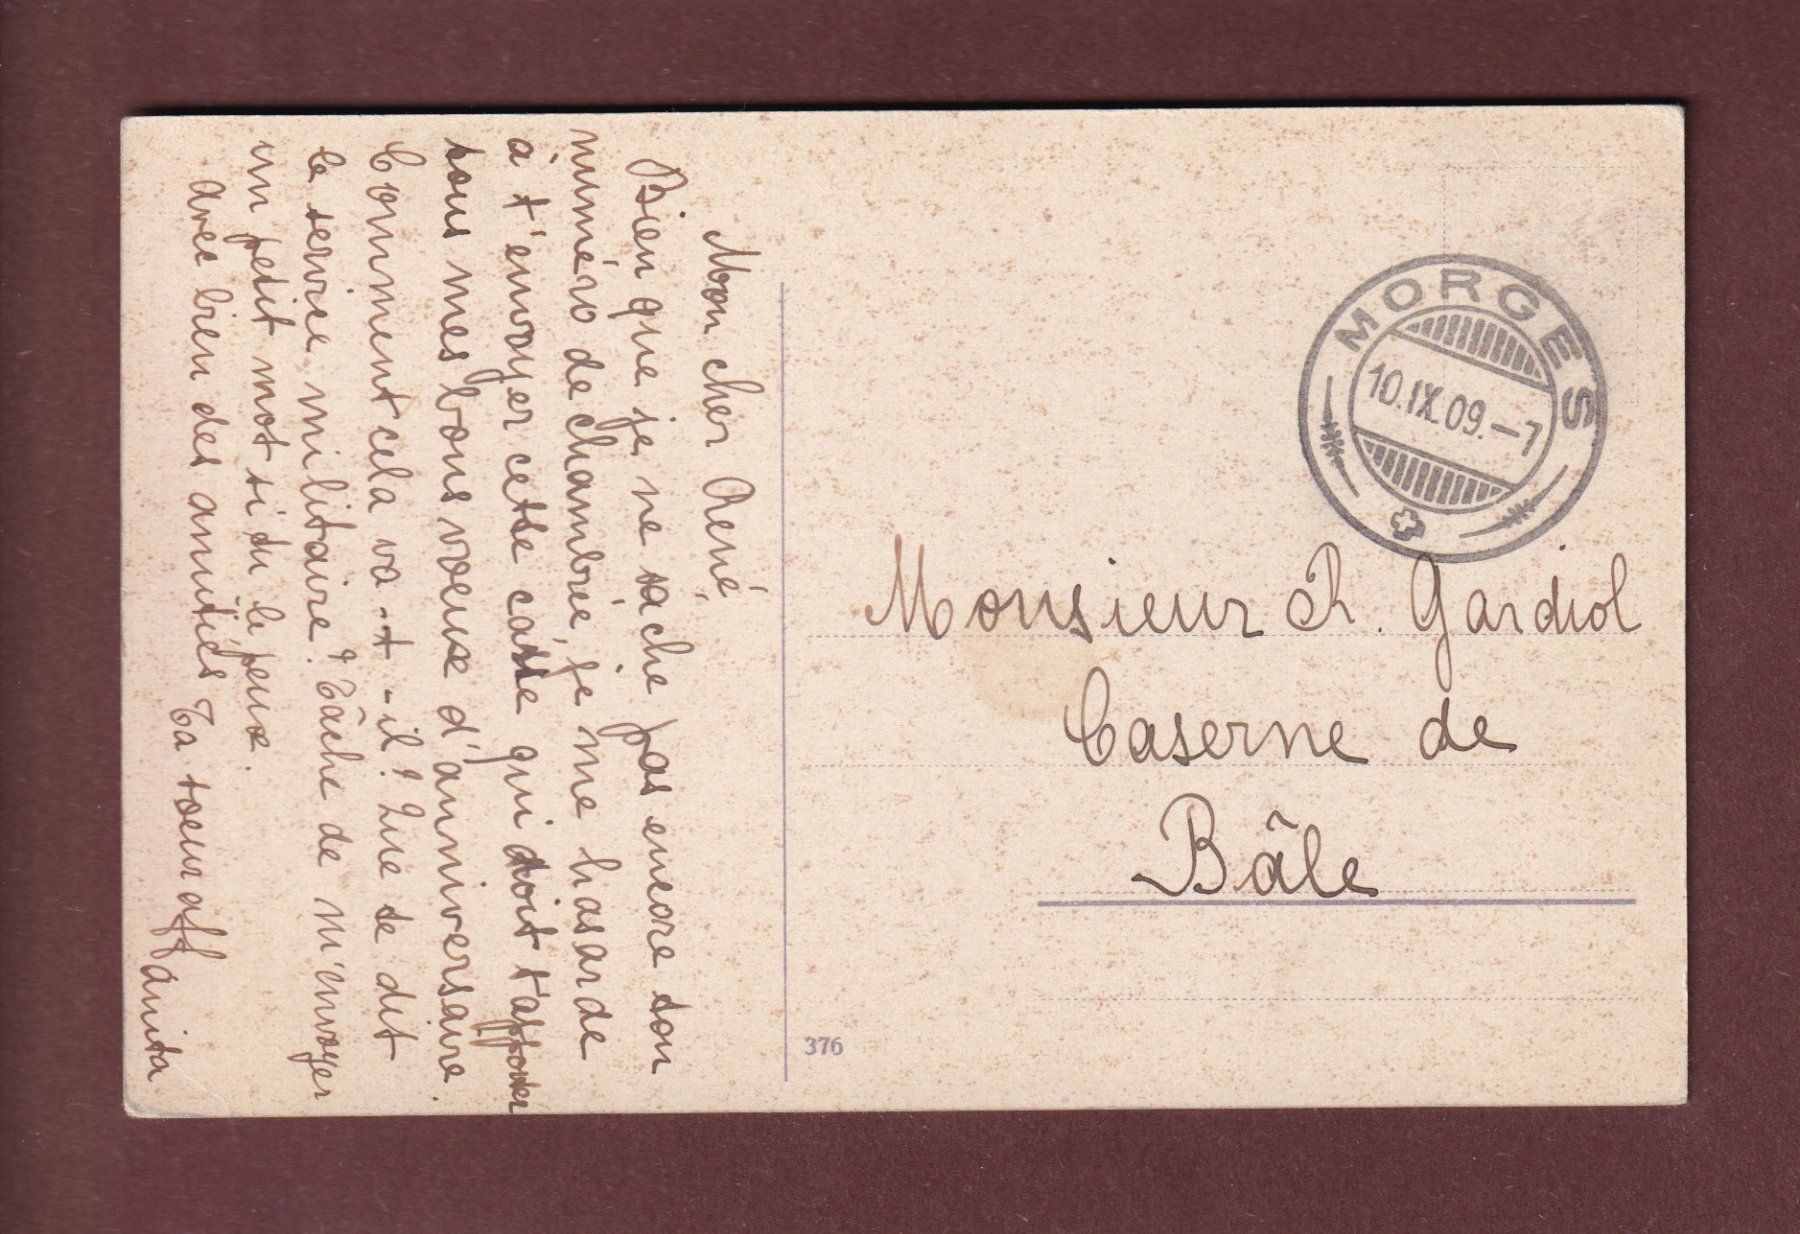 Mon cher René,
Bien que je ne sache pas encore ton
numéro de chambrée, je me hasarde
à t'envoyer cette carte qui doit t'apporter
tous mes bons voeux d'anniversaire.
Comment cela va-t-il? Que te dit
le service militaire? Tâche de m'envoyer
un petit mot si tu le peux.
Avec bien des amitiés Ta soeur aff
Fanita
MORGES
10.IX.09.-7
Monsieur R. Gardiol
Caserne de
Bâle
376